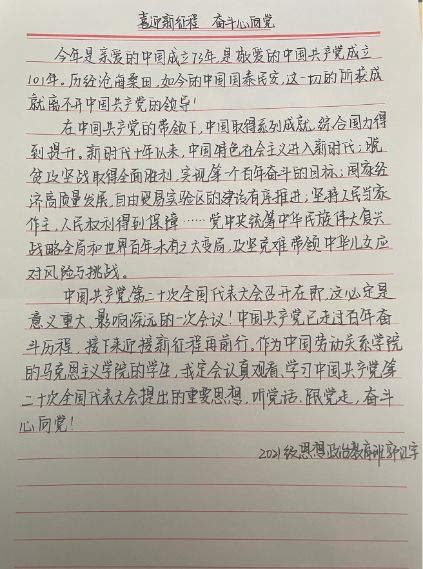 喜迎新征程 奋斗心向党
今年是亲爱的中国成立73年,是敬爱的中国共产党成立
101年。历经沧海桑田,如今的中国国泰民安,这一切的所获成
就离不开中国共产党的领导!
在中国共产党的带领下,中国取得系列成就,综合国力得
到提升。新时代十年以来,中国特色社会主义进入新时代;脱
贫攻坚战取得全面胜利,实现第一个百年奋斗的目标;国家经
济高质量发展,自由贸易实验区的建设有序推进;坚持人民当家
作主,人民权利得到保障……党中央统筹中华民族伟大复兴
战略全局和世界百年未有之大变局,攻坚克难带领中华儿女应
对风险与挑战。
中国共产党第二十次全国代表大会召开在即,这必定是
意义重大、影响深远的一次会议!中国共产党已走过百年奋
斗历程,接下来迎接新征程再前行,作为中国劳动关系学院
的马克思主义学院的学生,我定会认真观看、学习中国共产党第
二十次全国代表大会提出的重要思想,听党话、跟党走,奋斗
心向党!
2021级思想政治教育班郭